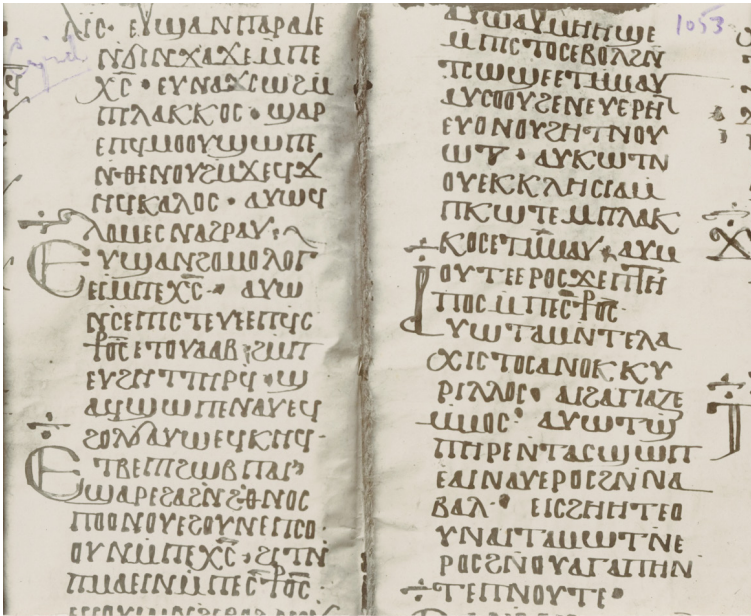 ⲗⲓⲥ· ⲉⲩϣⲁⲛⲡⲁⲣⲁⲓⲉ
ⲛϭⲓⲛϫⲁϫⲉⲙⲡⲉ
ⲭ̅ⲥ̅· ⲉⲩⲛⲁϫⲱϩⲙ
ⲡⲗⲁⲕⲕⲟⲥ· ϣⲁⲣ
ⲉⲡⲙⲟⲟⲩϣⲱⲡⲉ
ⲛⲑⲉⲛⲟⲩϩⲙϫⲉϥϫ
ⲏϥⲕⲁⲗⲟⲥ· ⲁⲩⲱϥ
ⲗⲟⲙⲉⲥⲛⲁϩⲣⲁⲩ·
ⲉⲩϣⲁⲛϩⲟⲙⲟⲗⲟⲅ
ⲉⲓⲙⲡⲉⲭ̅ⲥ̅· ⲁⲩⲱ
ⲛⲥⲉⲡⲓⲥⲧⲉⲩⲉⲉⲡⲉϥⲥ
ⲣ̅ⲟ̅ⲥ̅ⲉⲧⲟⲩⲁⲁⲃ·ϩⲙⲡ
ⲉⲩϩⲏⲧⲧⲏⲣϥ·ϣ
ⲁϥϣⲱⲡⲉⲛⲁⲩⲉϥ
ϩⲟⲗϭⲁⲩⲱⲉϥⲕⲏϥ·
ⲉⲧⲃⲉⲡϩⲱⲃⲡⲁⲓ
ⲉϣⲁⲣⲉϩⲁϩⲛϩⲉⲑⲛⲟⲥ
ⲡⲟⲟⲛⲟⲩⲉϩⲟⲩⲛⲉⲡⲥⲟ
ⲟⲩⲛⲙⲡⲉⲭ̅ⲥ̅·ϩⲓⲧⲛ
ⲡⲙⲁⲉⲓⲛⲙⲡⲉⲥⲣ̅ⲟ̅ⲥ̅·
1053
ⲁⲩⲱⲁⲩⲙⲏⲏϣⲉ
ⲙⲡⲓⲥⲧⲟⲥⲉⲃⲟⲗϩⲛ
ⲧⲥⲱϣⲉⲉⲧⲙⲙⲁⲩ
ⲁⲩⲥⲟⲟⲩϩⲉⲛⲉⲩⲉⲣⲏ
ⲉⲩⲟⲛⲟⲩϩⲏⲧⲛⲟⲩ
ⲱⲧ· ⲁⲩⲕⲱⲧⲛ
ⲟⲩⲉⲕⲕⲗⲏⲥⲓⲁⲙ
ⲡⲕⲱⲧⲉⲙⲡⲗⲁⲕ
ⲕⲟⲥⲉⲧⲙⲙⲁⲩ·ⲁⲩⲙ
ⲟⲩⲧⲉⲉⲣⲟⲥϫⲉⲡⲧⲏ
ⲡⲟⲥⲙⲡⲉⲥⲣ̅ⲟ̅ⲥ̅·
ⲁⲩⲱⲧⲁⲙⲛⲧⲉⲗⲁ
ⲭⲓⲥⲧⲟⲥⲁⲛⲟⲕⲕⲩ
ⲣⲓⲗⲗⲟⲥ· ⲁⲓϩⲁⲅⲓⲁⲍⲉ
ⲙⲙⲟⲥ· ⲁⲩⲱⲧϣ
ⲡⲏⲣⲉⲛⲧⲁⲥϣⲱⲡ
ⲉⲁⲓⲛⲁⲩⲉⲣⲟⲥϩⲛⲛⲁ
ⲃⲁⲗ· ⲉⲓⲥϩⲏⲏⲧⲉⲟ
ⲩⲛⲁⲓⲧⲁⲙⲱⲧⲛⲉ
ⲣⲟⲥϩⲛⲟⲩⲁⲅⲁⲡⲏⲛ
ⲧⲉⲡⲛⲟⲩⲧⲉ·